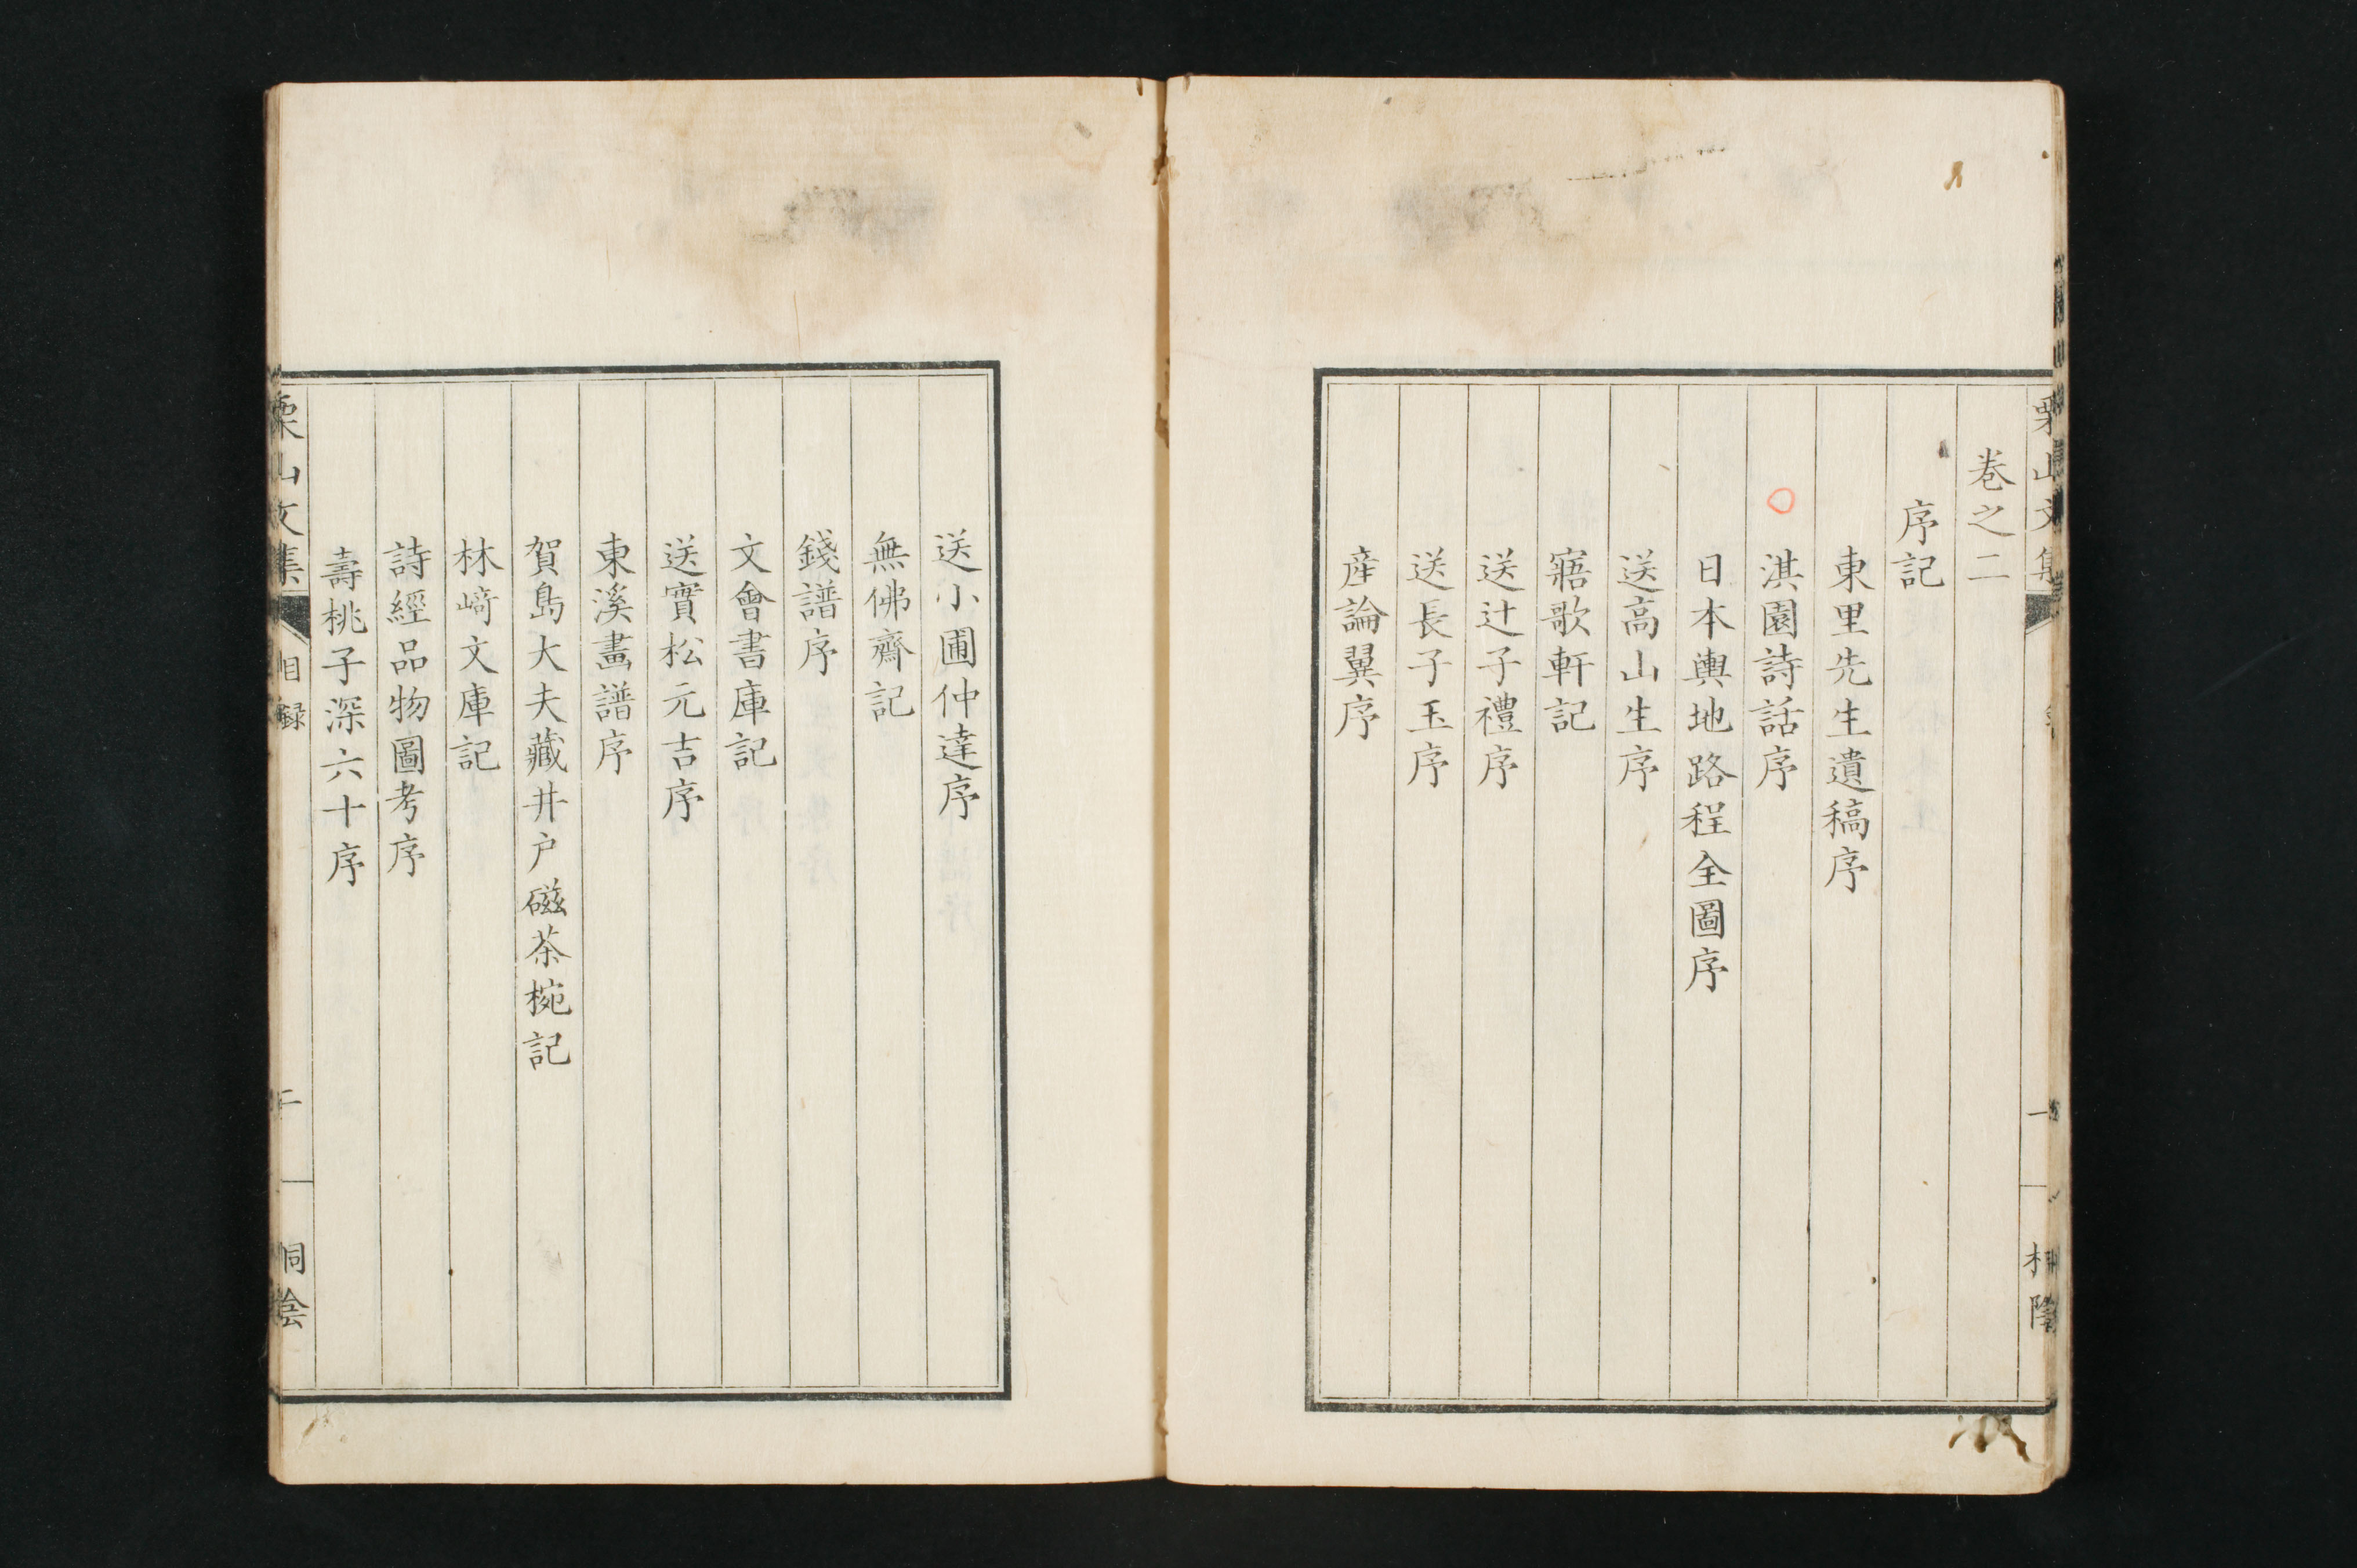 巻之二
序記
東里先生遺稿序
淇園詩話序
日本輿地路程全圖序
送高山生序
寤歌軒記
送辻子禮序
送長子玉序
産論翼序
送小圃仲達序
無佛齋記
錢譜序
文會書庫記
送實松元吉序
東溪畫譜序
賀島大夫藏井户磁茶椀記
林﨑文庫記
詩經品物圖考序
壽桃子深六十序
栗山文集
目録
二